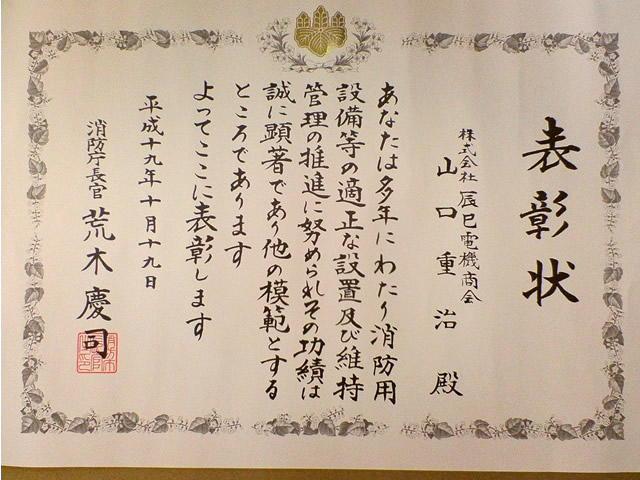 表彰状
株式会社 辰巳電機商会
山口重治 殿
あなたは多年にわたり消防用
設備等の適正な設置及び維持
管理の推進に努められその功績は
誠に顕著であり他の模範とする
ところであります
よってここに表彰します
平成十九年十月十九日
消防庁長官 荒木慶司